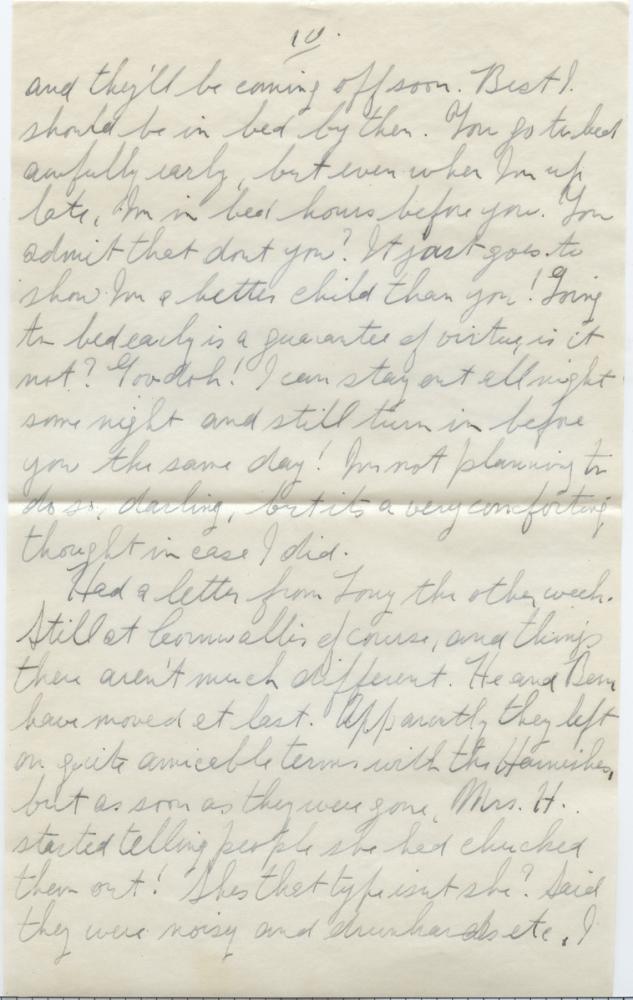 10.
and they'll be coming off soon. Best I
should be in bed by then. You go to bed
awfully early, but even when Im up
late, Im in bed hours before you. You
admit that dont you? It just goes to
show Im a better child than you! Going
to bed early is a guarantee of virtue, is it
not? Goodoh! I can stay out all night
some night and still turn in before
you the same day! Im not planning to
do so, darling, but its a very comforting
thought in case I did.
Had a letter from Tony the other week.
Still at Cornwallis of course, and things
there aren't much different. He and Bern
have moved at last. Apparently they left
on quite amicable terms with the
but as soon as they were gone, Mrs. H.
started telling people she had chucked
them out! Shes that type isnt she? Said
they were noisy and drunkards etc. I